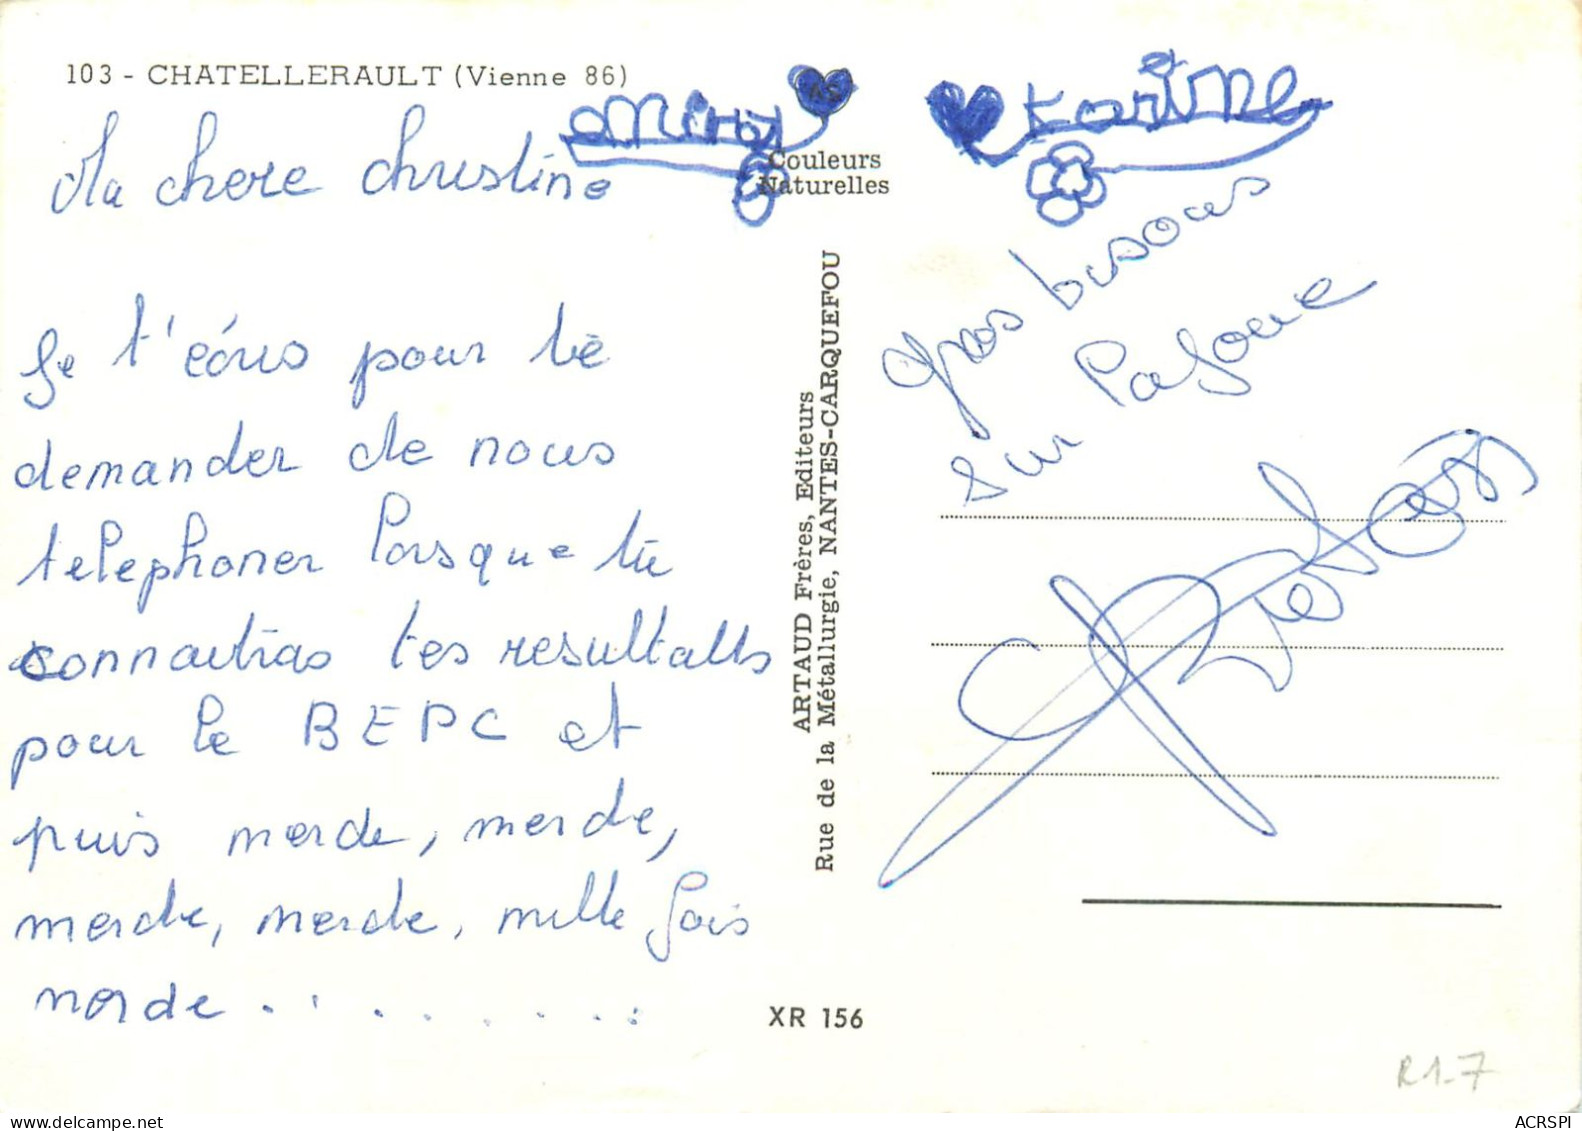 103 - CHATELLERAULT (Vienne 86)
Ma chere christine
Je t'écris pour te
demander de nous
telephoner lorsque tu
connaitras tes resultalts
pour le BEPC et
puis merde, merde,
merde, merde, mille fois
merde . . . . . . . .
Couleurs
Naturelles
ARTAUD Frères, Editeurs
Rue de la Métallurgie, NANTES-CARQUEFOU
XR 156
Karine
Gros bisous
sur la joue
R1-7
ACRSPI